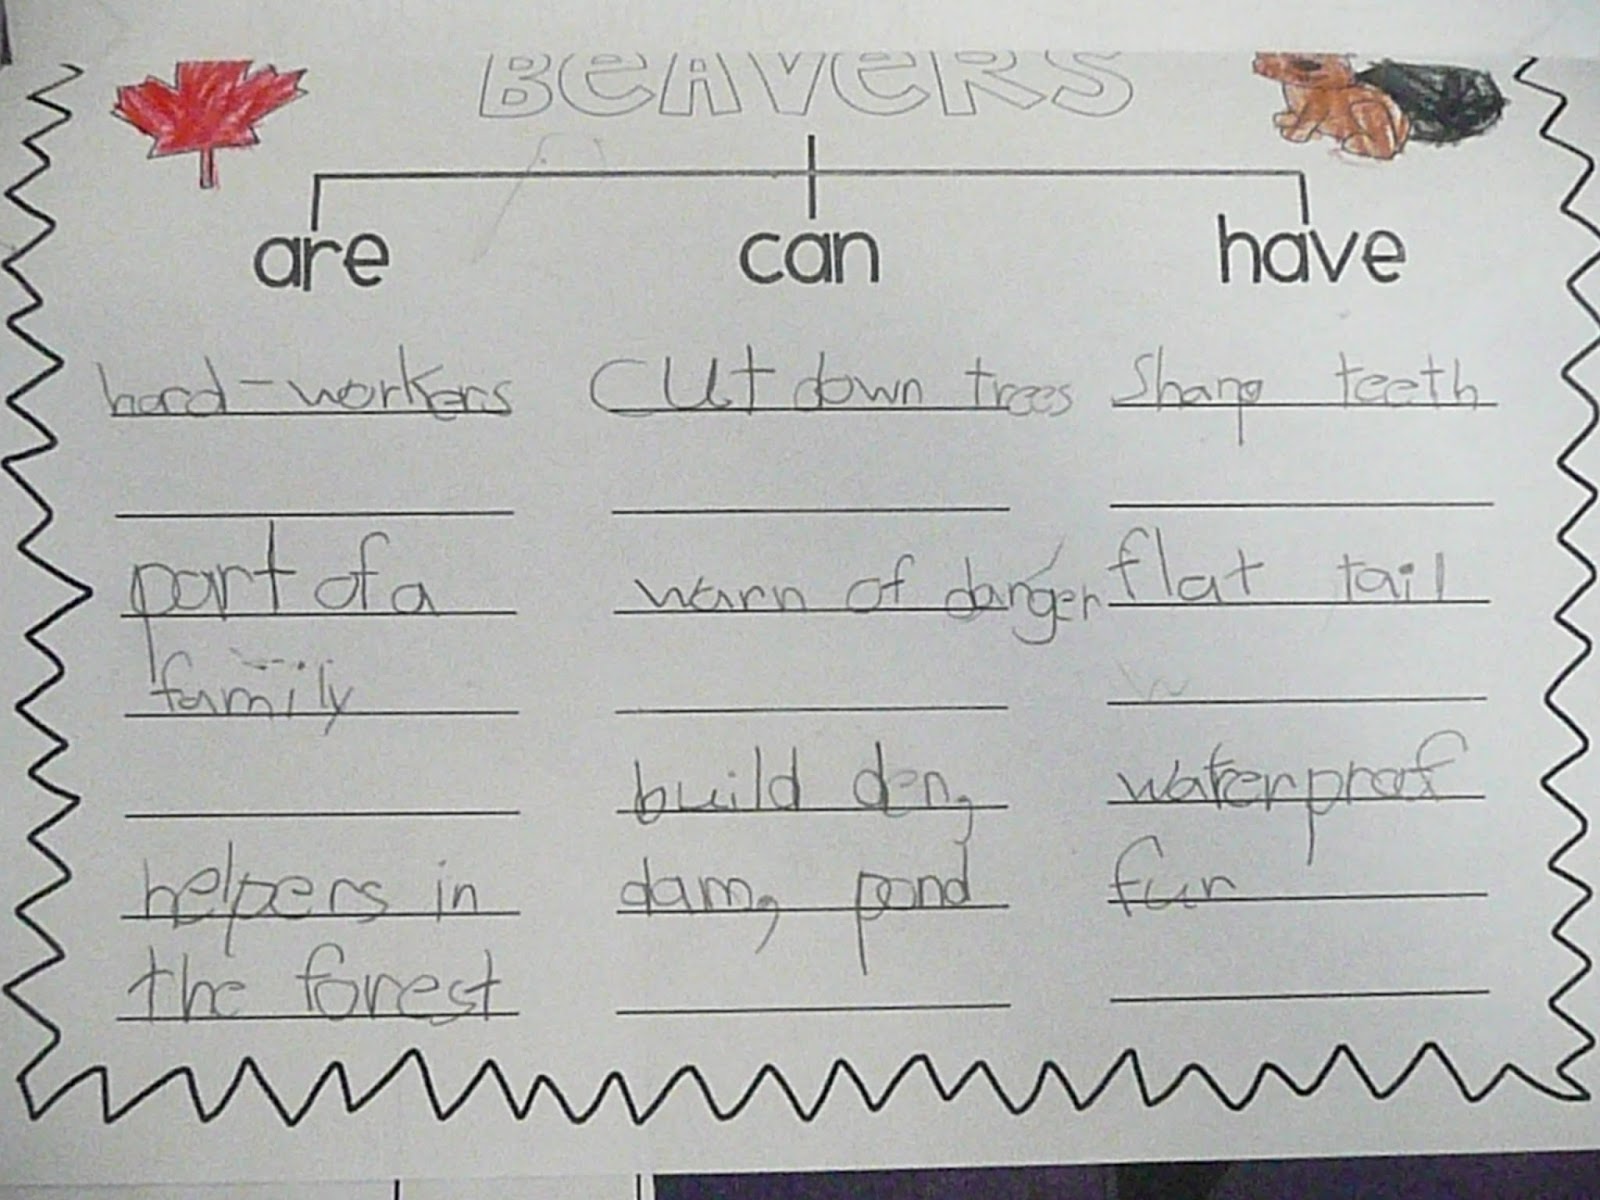 BEAVERS
are can have
hard-workers cut down trees sharp teeth
part of a warn of danger flat tail
family
build den, waterproof
helpers in dam, pond fur
the forest